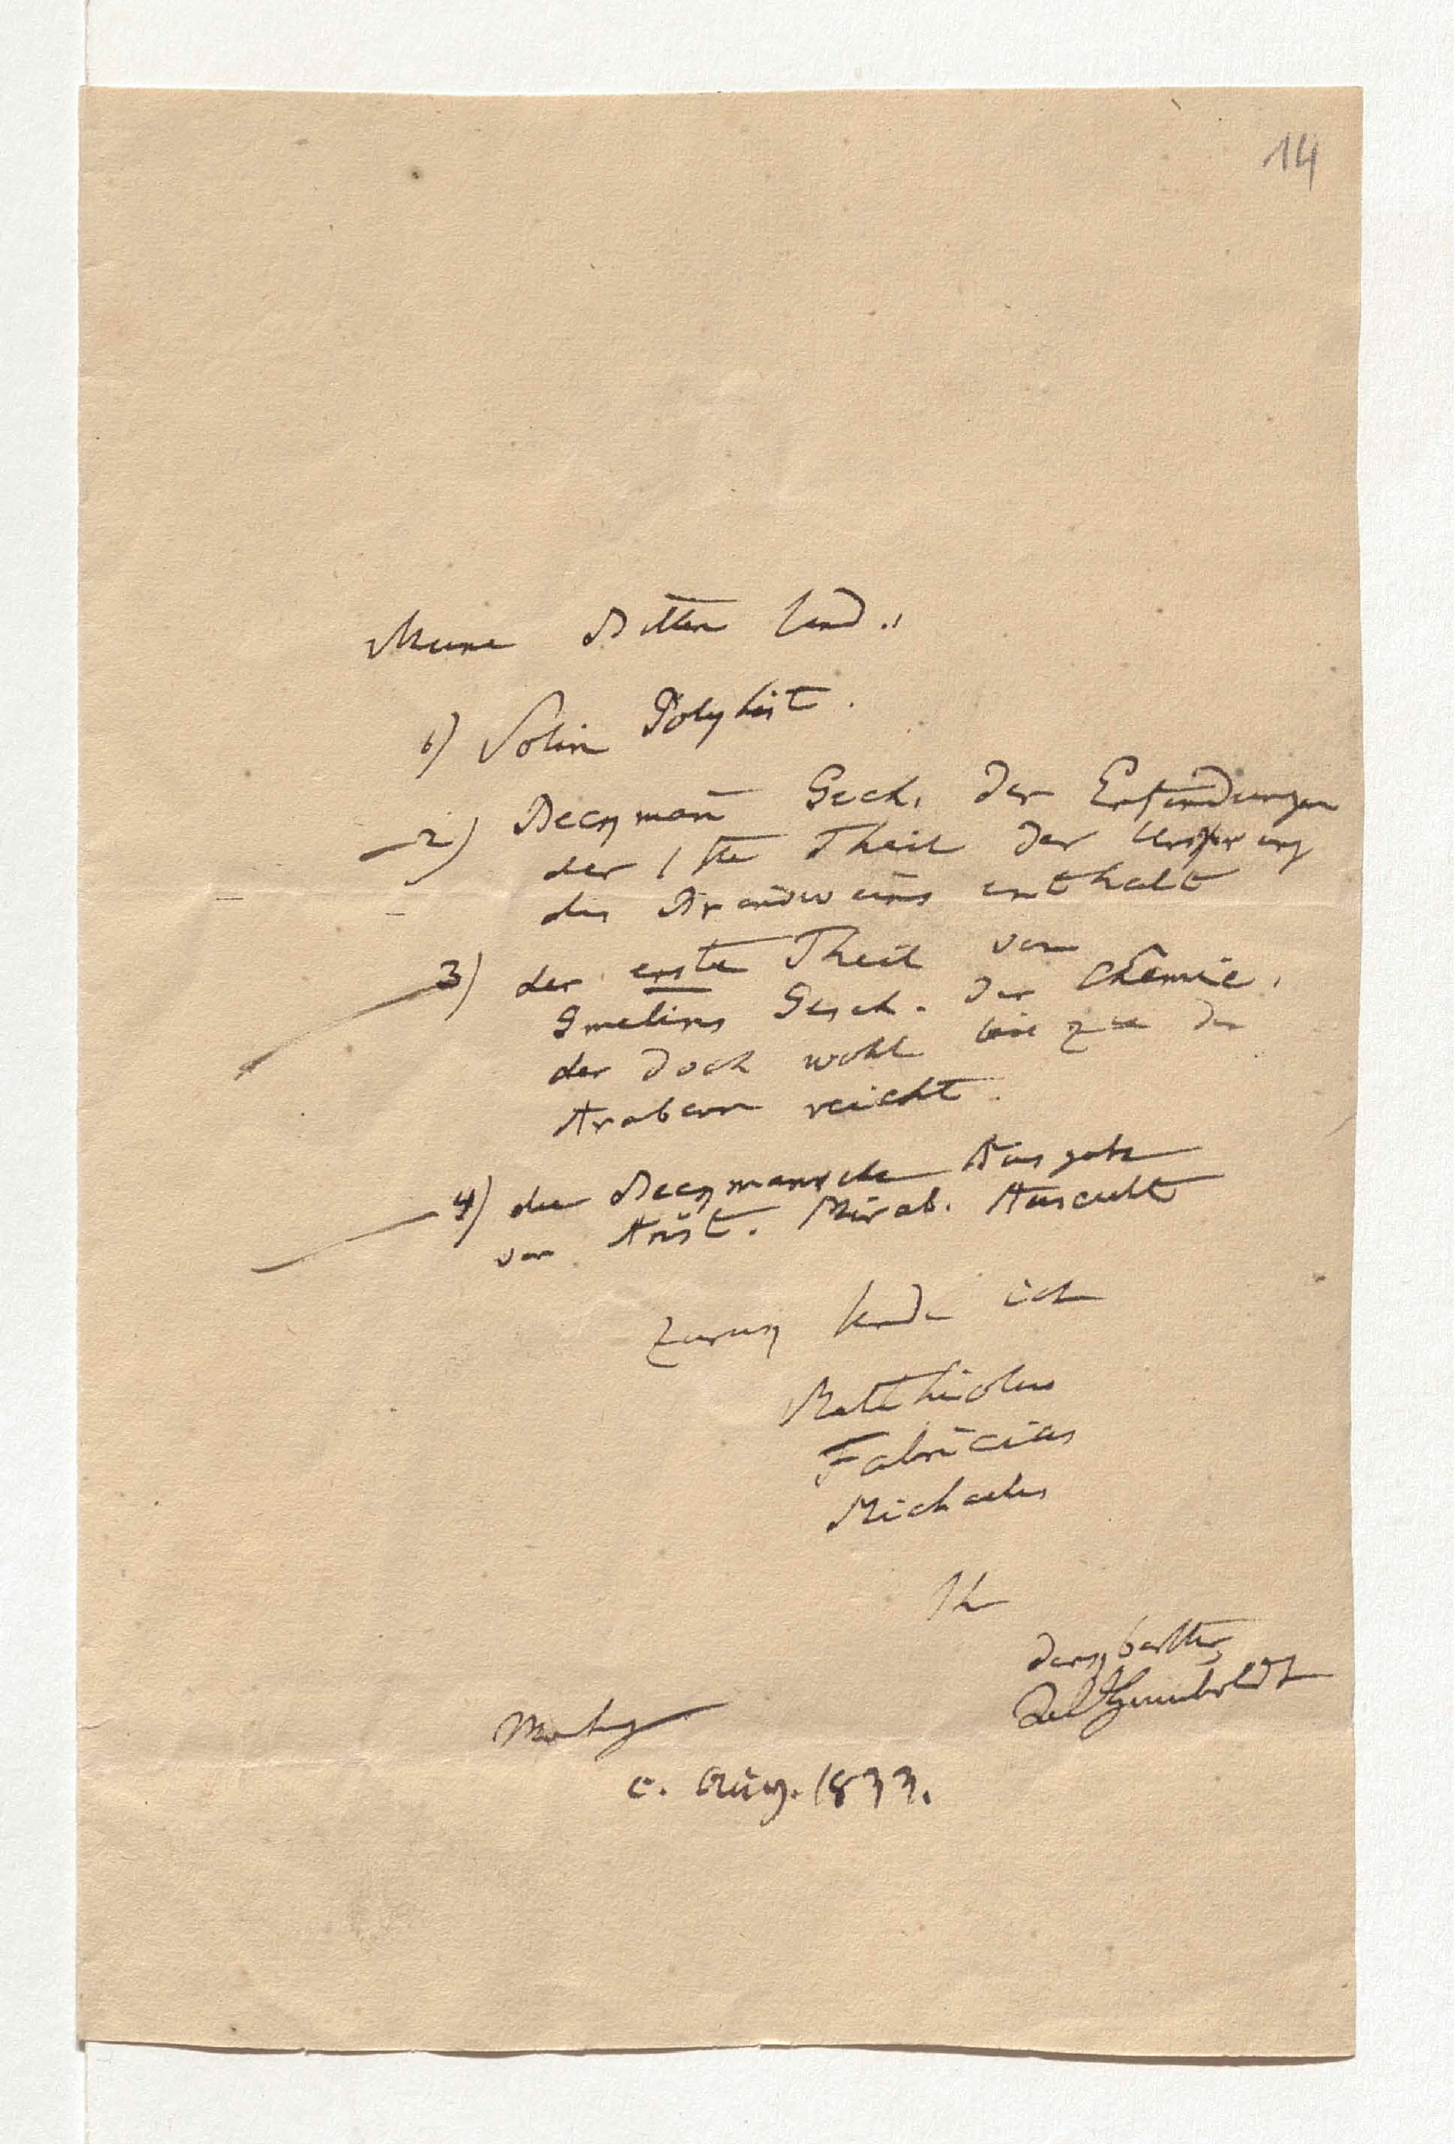 14
Meine Bitten sind:
1) Solin Polyhist.
2) Beckmañ Gesch. der Erfindungen
der 1ste Theil der Ursprung
des Brandweins enthalt
3) der erste Theil von
Gmelins Gesch. der Chemie,
der doch wohl bis zu den
Arabern reicht.
4) die Beckmansche Ausgabe
von Arist. Mirab. Auscult
Zurück sende ich
Matthiolus
Fabricius
Michaelis
Ihr
dankbarster
AlHumboldt
Montag
c. Aug. 1833.